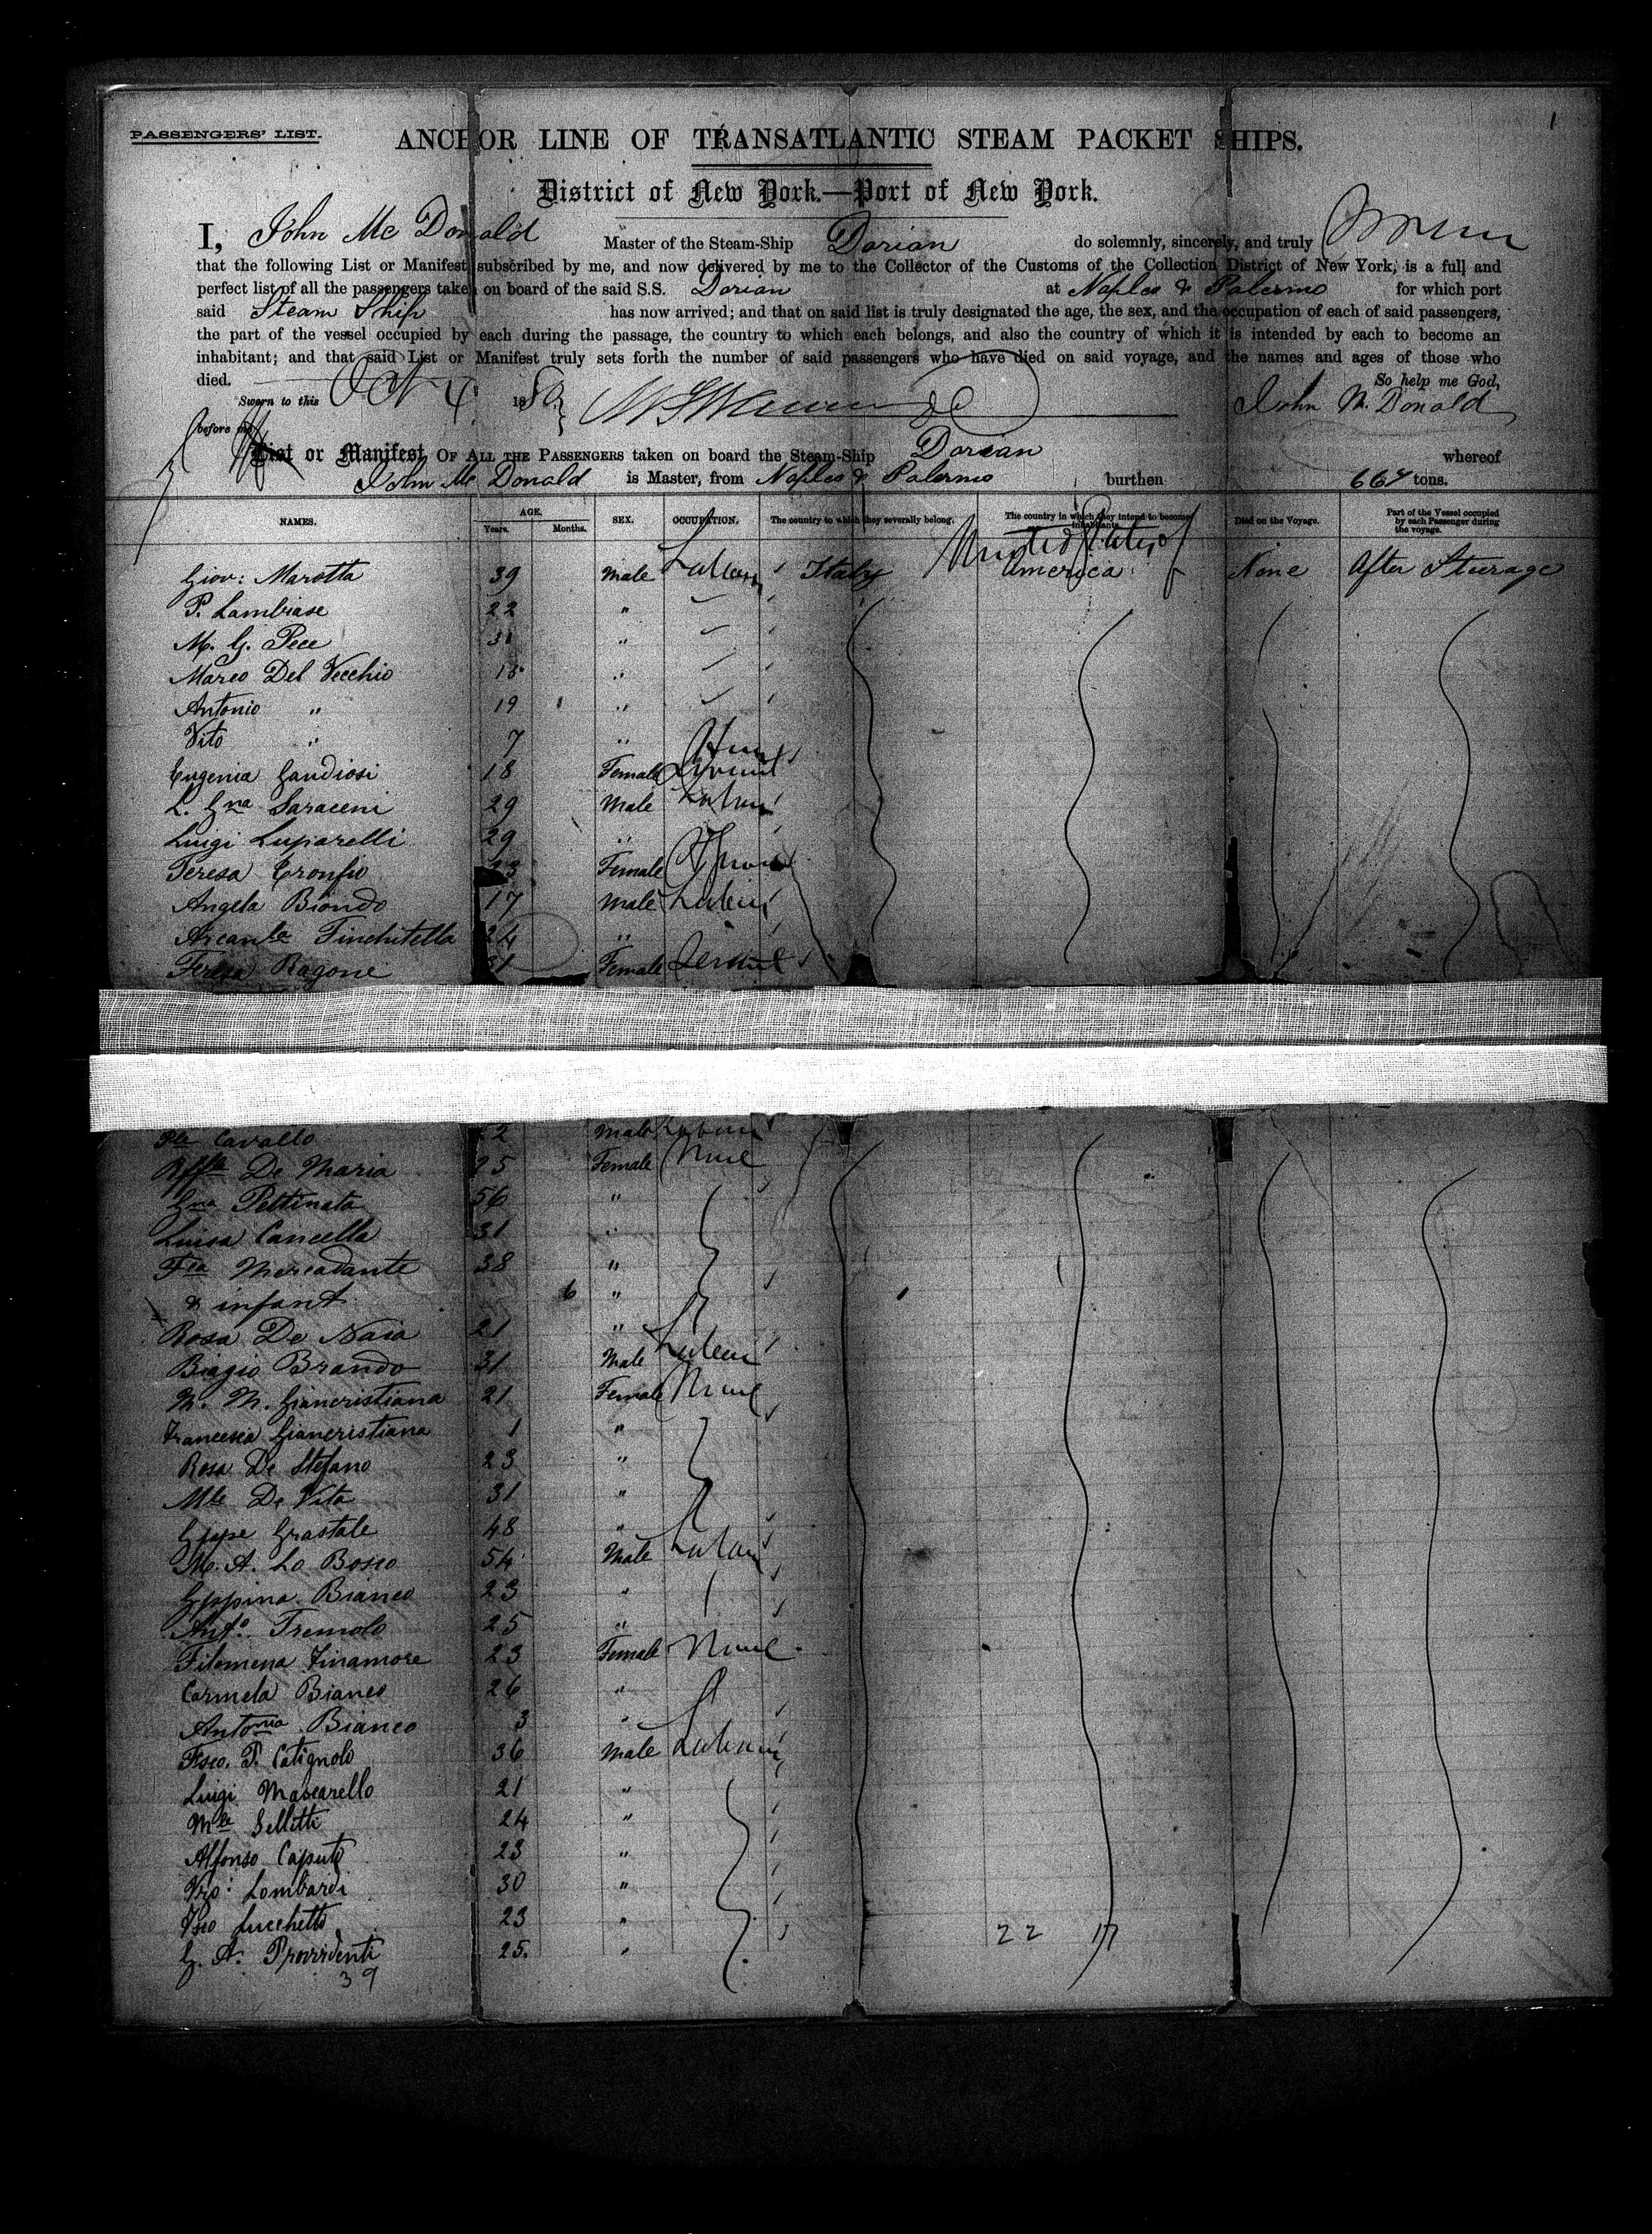 1
PASSENGERS' LIST.
ANCHOR LINE OF TRANSATLANTIC STEAM PACKET SHIPS.
District of New York.—Port of New York.
I, John Mc Donald Master of the Steam-Ship Dorian do solemnly, sincerely, and truly
that the following List or Manifest subscribed by me, and now delivered by me to the Collector of the Customs of the Collection District of New York, is a full and
perfect list of all the passengers taken on board of the said S.S. Dorian at Naples & Palermo for which port
said Steam Ship has now arrived; and that on said list is truly designated the age, the sex, and the occupation of each of said passengers,
the part of the vessel occupied by each during the passage, the country to which each belongs, and also the country of which it is intended by each to become an
inhabitant; and that said List or Manifest truly sets forth the number of said passengers who have died on said voyage, and the names and ages of those who
died. So help me God,
Sworn to this Oct 4 18 John Mc Donald
before me
List or Manifest OF ALL THE PASSENGERS taken on board the Steam-Ship Dorian whereof
John Mc Donald is Master, from Naples & Palermo burthen 667 tons.
NAMES. AGE. Years. Months. SEX. OCCUPATION. The country to which they severally belong. The country in which they intend to become inhabitants. Died on the Voyage. Part of the Vessel occupied by each Passenger during the voyage.
Giov: Marotta 39 Male Italy United States of America None After Steerage
P. Lambiase 22 "
M. G. Pece "
Marco Del Vecchio "
Antonio " 19 "
Vito " 7 "
Eugenia Gaudiosi 18 Female
L. Gna Saraceni 29 Male
Luigi Luparelli 29 "
Teresa Female
Angela Biondo 17 Male
Finchitella 24 "
Teresa Ragone 31 Female
Cavallo 22 Male
De Maria 25 Female
Gna Pettinata 56 "
Luisa Cancella 31 "
Fca Mercadante 38 "
& infant 6 "
Rosa De Naia 21 "
Biagio Brando 31 Male
M. M. Giancristiana 21 Female
Francesca Giancristiana 1 "
Rosa De Stefano 23 "
Mle De Vita 31 "
Gppe Grastale 48 "
M. A. Lo Bosco 54 Male
Gppina Bianco 23 "
Anto. Tremolo 25 "
Filomena Finamore 23 Female
Carmela Bianco 26 "
Antonia Bianco 3 "
Fsco. P. Catignolo 36 Male
Luigi Mascarello 21 "
Mle Sellitti 24 "
Alfonso Caputo 23 "
Vzo: Lombardi 30 "
Fsco Lucchetti 23 "
G. A. Provvidenti 25. "
22 17
39